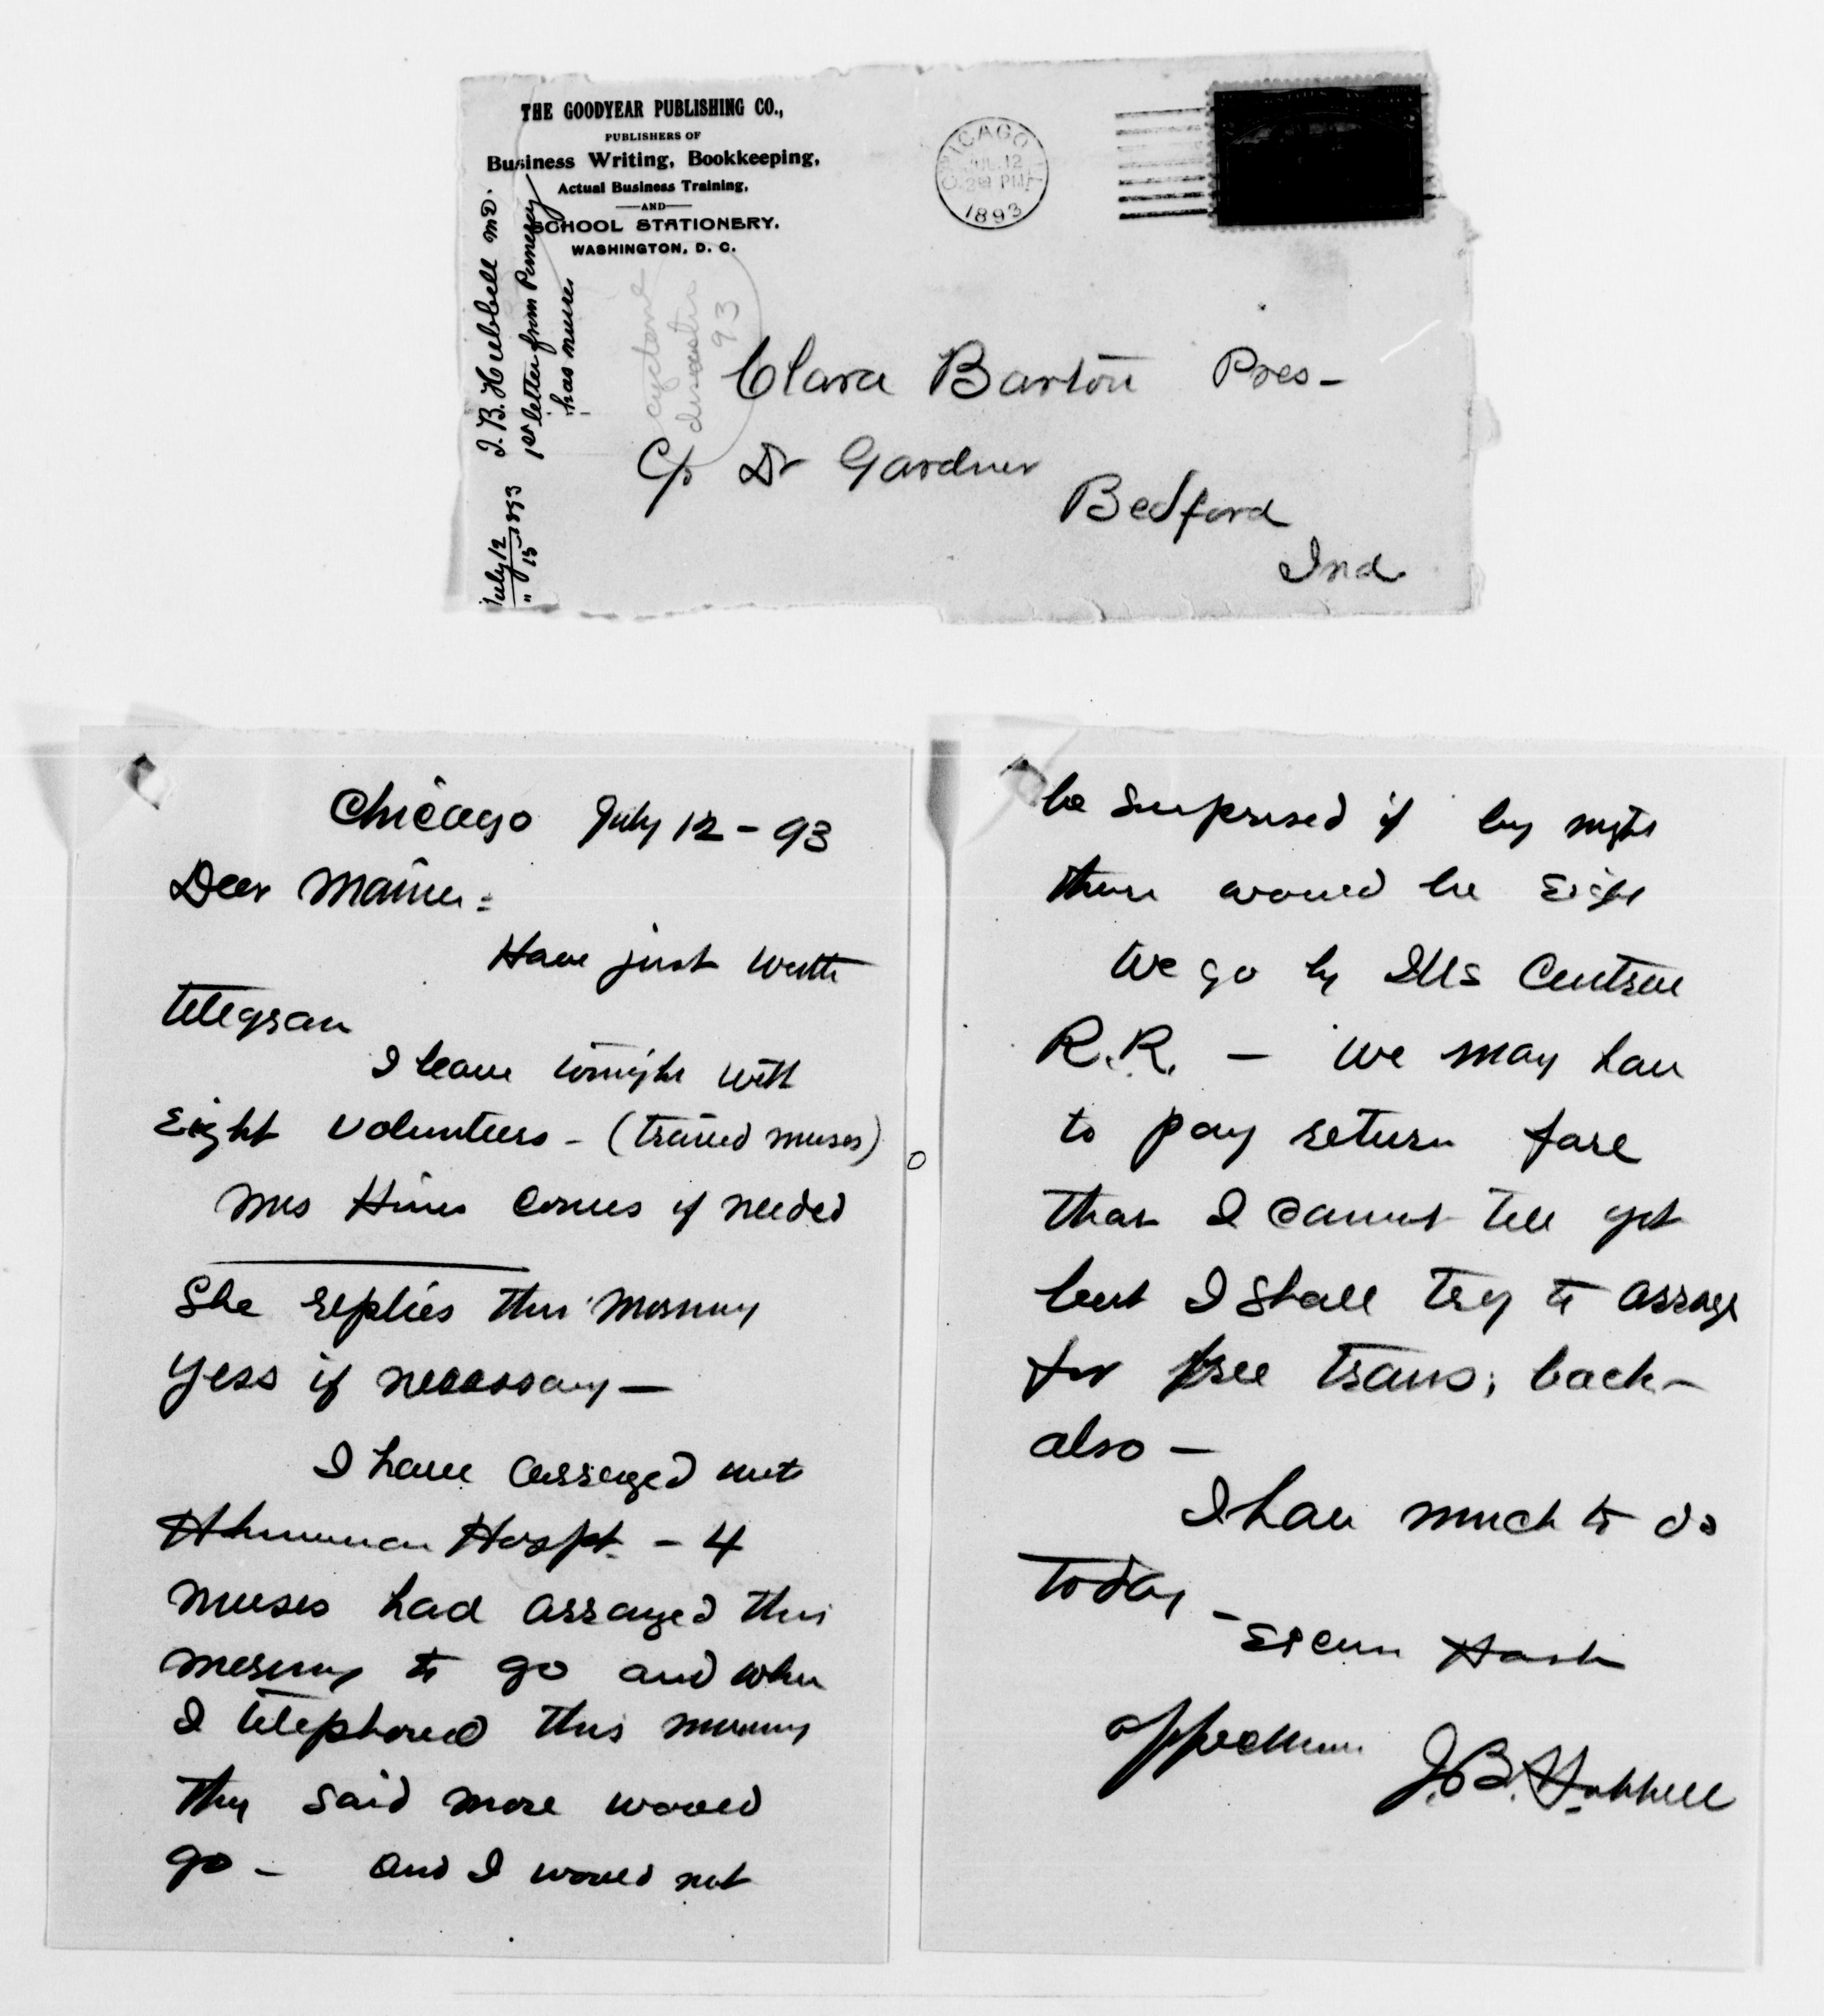 THE GOODYEAR PUBLISHING CO.,
PUBLISHERS OF
Business Writing, Bookkeeping,
Actual Business Training,
AND
SCHOOL STATIONERY.
WASHINGTON, D. C.
CHICAGO
JUL 12
PM
1893
July 12 1893 J. B. Hubbell MD.
" 15 1st letter from
has nurses
cyclone
disaster
93
Clara Barton Pres-
C/o Dr Gardner
Bedford
Ind.
Chicago July 12 - 93
Dear Mamie =
Have just
telegram
I leave tonight with
Eight volunteers - (trained nurses)
Mrs Hines comes if needed
She replies this morning
Yess if necessary —
I have arranged with
Hospt. - 4
nurses had arranged this
morning to go and when
I telephoned this morning
they said more would
go - and I would not
be surprised if by night
there would be Eight
We go by Ills Central
R.R. — We may have
to pay return fare
that I cannot tell yet
but I shall try to arrange
for free trans; back -
also —
I have much to do
today -
Haste
J. B. Hubbell